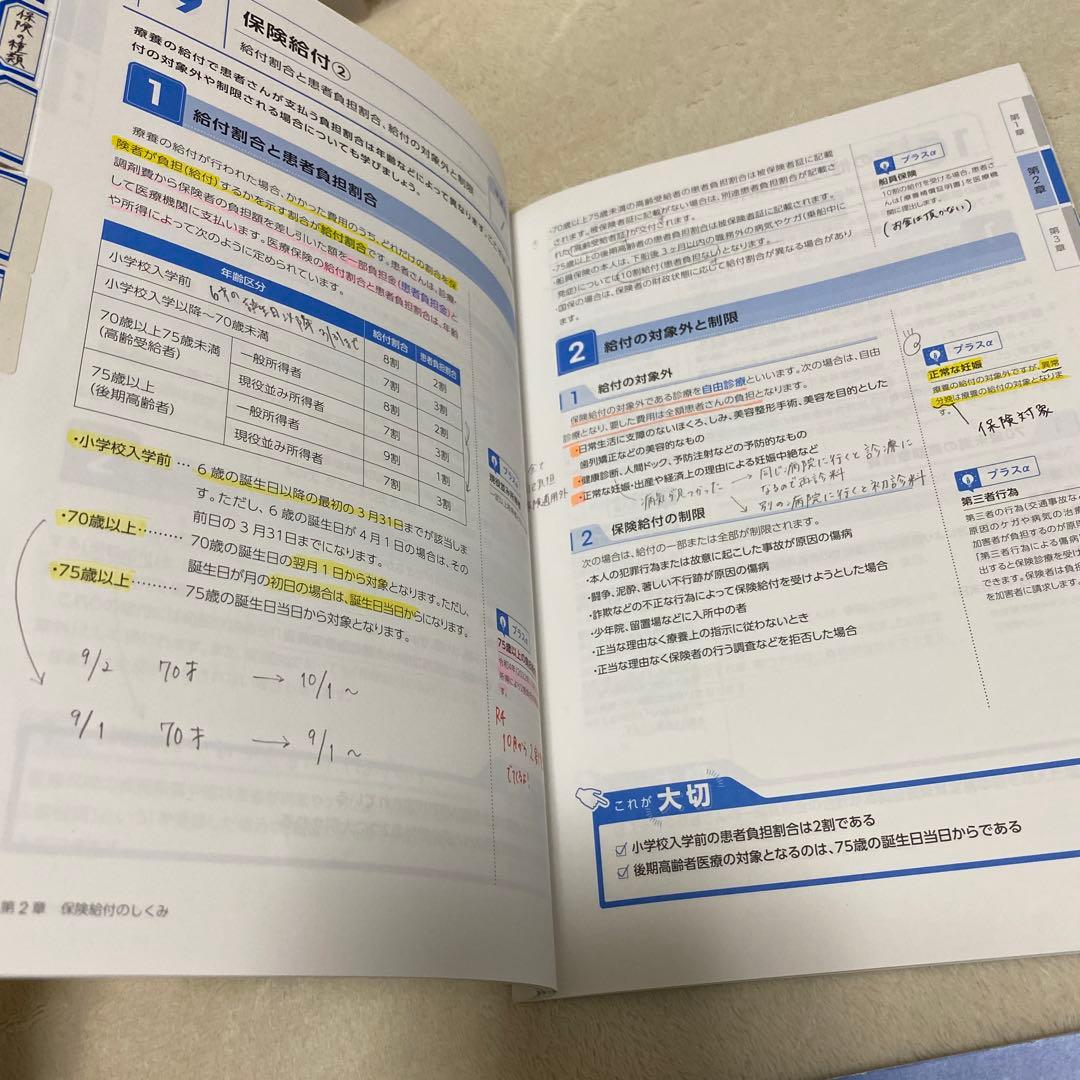 保険の種類
9
保険給付②
給付割合と患者負担割合、給付の対象外と制限
療養の給付で患者さんが支払う負担割合は年齢などによって異なります。ここでは、給
付の対象外や制限される場合についても学びましょう。
1
給付割合と患者負担割合
療養の給付が行われた場合、かかった費用のうち、どれだけの割合を保
険者が負担(給付)するかを示す割合が給付割合です。患者さんは、診療・
調剤費から保険者の負担額を差し引いた額を一部負担金(患者負担金)と
して医療機関に支払います。医療保険の給付割合と患者負担割合は、年齢
や所得によって次のように定められています。
年齢区分
給付割合
患者負担割合
小学校入学前
8割
2割
小学校入学以降〜70歳未満
7割
3割
70歳以上75歳未満
(高齢受給者)
一般所得者
8割
2割
現役並み所得者
7割
3割
75歳以上
(後期高齢者)
一般所得者
9割
1割
現役並み所得者
7割
3割
・小学校入学前… 6歳の誕生日以降の最初の3月31日までが該当しま
す。ただし、6歳の誕生日が4月1日の場合は、その
前日の3月31日までになります。
・70歳以上……… 70歳の誕生日の翌月1日から対象となります。ただし、
誕生日が月の初日の場合は、誕生日当日からになります。
・75歳以上……… 75歳の誕生日当日から対象となります。
9/2 70才 → 10/1 〜
9/1 70才 → 9/1 〜
プラスα
プラスα
R4
10月から
第2章 保険給付のしくみ
・70歳以上75歳未満の高齢受給者の患者負担割合は被保険者証に記載
されます。被保険者証に記載がない場合は、別途患者負担割合が記載さ
れた「高齢受給者証」が交付されます。
・75歳以上の後期高齢者の患者負担割合は被保険者証に記載されます。
・船員保険の本人は、下船後3ヶ月以内の職務外の病気やケガ(乗船中に
発症)については10割給付(患者負担なし)となります。
・国保の場合は、保険者の財政状態に応じて給付割合が異なる場合があり
ます。
プラスα
船員保険
10割の給付を受ける場合、患者さ
んは「療養補償証明書」を医療機
関に提出します。
(お金は頂かない)
第1章
第2章
第3章
2
給付の対象外と制限
1 給付の対象外
保険給付の対象外である診療を自由診療といいます。次の場合は、自由
診療となり、要した費用は全額患者さんの負担となります。
・日常生活に支障のないほくろ、しみ、美容整形手術、美容を目的とした
歯列矯正などの美容的なもの
・健康診断、人間ドック、予防注射などの予防的なもの
・正常な妊娠・出産や経済上の理由による妊娠中絶など
病気が見つかった → 同じ病院に行くと診療に
なるので再診料
→ 別の病院に行くと初診料
プラスα
正常な妊娠
療養の給付の対象外ですが、異常
分娩は療養の給付の対象となりま
す。
保険対象
2 保険給付の制限
次の場合は、給付の一部または全部が制限されます。
・本人の犯罪行為または故意に起こした事故が原因の傷病
・闘争、泥酔、著しい不行跡が原因の傷病
・詐欺などの不正な行為によって保険給付を受けようとした場合
・少年院、留置場などに入所中の者
・正当な理由なく療養上の指示に従わないとき
・正当な理由なく保険者の行う調査などを拒否した場合
プラスα
第三者行為
第三者の行為(交通事故な
原因のケガや病気の治療
加害者が負担するのが原
「第三者行為による傷病
出すると保険診療を受け
できます。保険者は負担
を加害者に請求しま
これが大切
小学校入学前の患者負担割合は2割である
後期高齢者医療の対象となるのは、75歳の誕生日当日からである